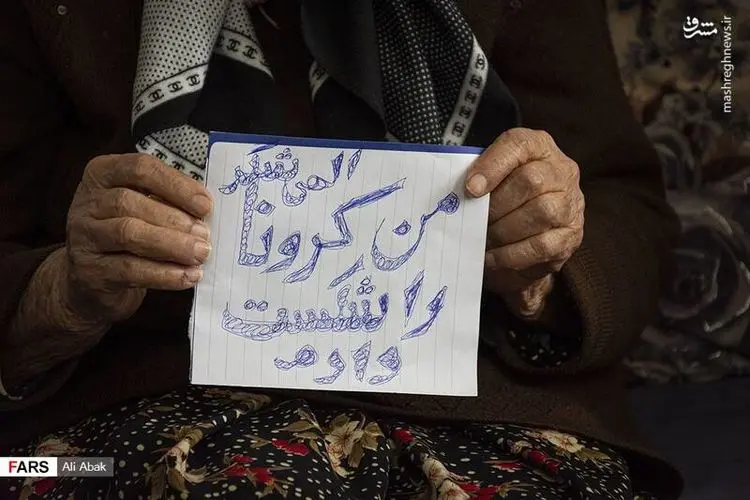 مشرق
mashreghnews.ir
الهی شکر
من کرونا
را شکست
دادم
FARS Ali Abak